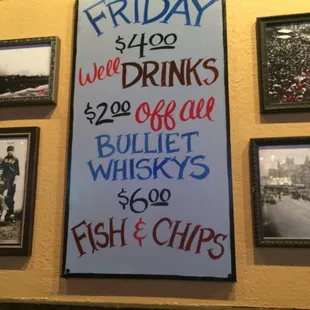 FRIDAY
$4.00
Well DRINKS
$2.00 off all
BULLIET
WHISKYS
$6.00
FISH & CHIPS